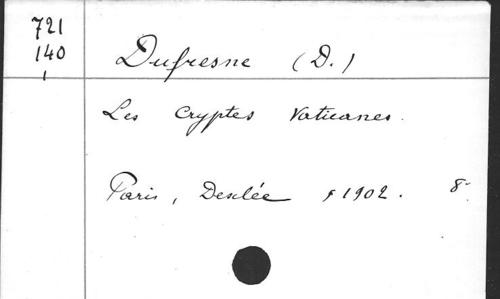 721
140
1
Dufresne (D.)
Les Cryptes Vaticanes.
Paris, Desclée 1902. 8-